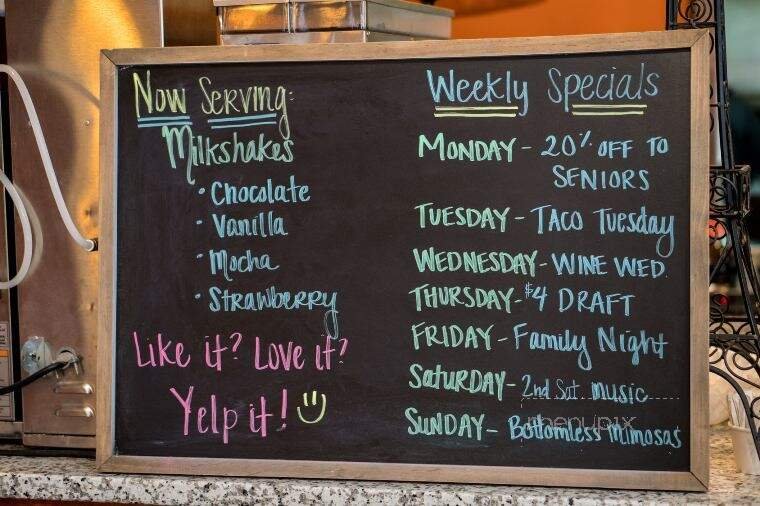 Now Serving:
Milkshakes
• Chocolate
• Vanilla
• Mocha
• Strawberry
Like it? Love it?
Yelp it!
Weekly Specials
MONDAY - 20% OFF TO
SENIORS
TUESDAY - TACO TUESDAY
WEDNESDAY - WINE WED.
THURSDAY - $4 DRAFT
FRIDAY - Family Night
SATURDAY - 2nd Sat. music
SUNDAY - Bottomless mimosas
menupix